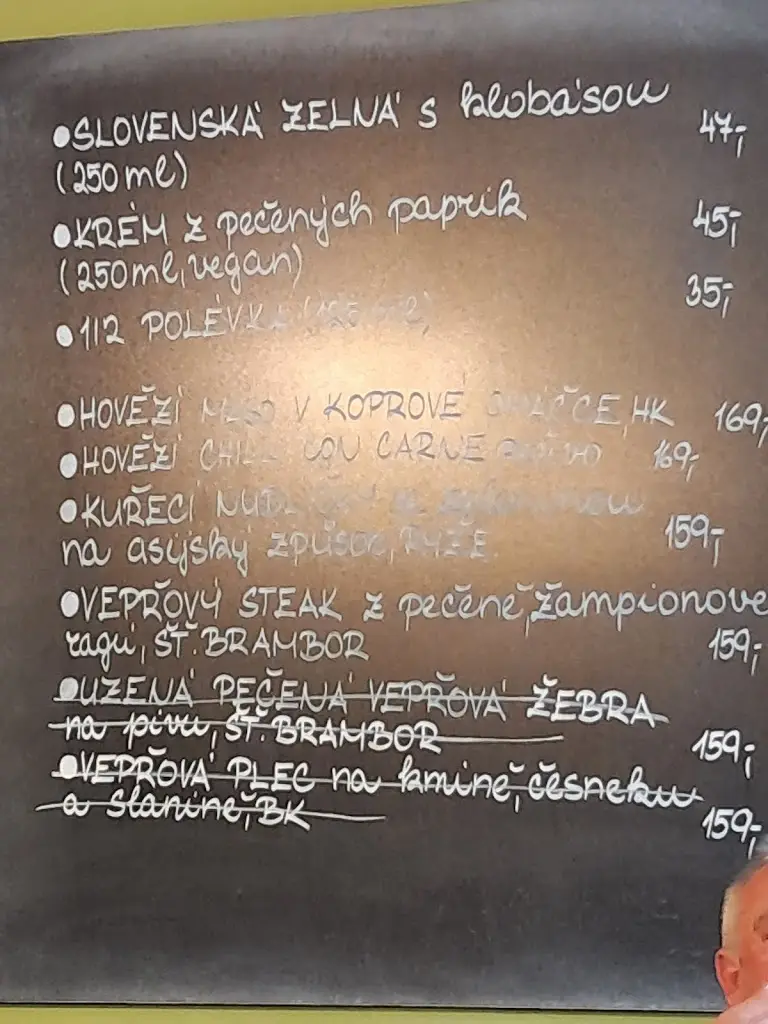 ●SLOVENSKÁ ZELNÁ S klobásou 47,-
(250 ml)
●KRÉM z pečených paprik 45,-
(250ml, vegan)
●1/2 POLÉVKA 35,-
●HOVĚZÍ MASO V KOPROVÉ OMÁČCE, HK 169,-
●HOVĚZÍ CHILLI CON CARNE 169,-
●KUŘECÍ NUDLIČKY se zeleninou
na asijský způsob, RÝŽE 159,-
●VEPŘOVÝ STEAK z pečeně, žampionové
ragú, ŠŤ. BRAMBOR 159,-
●UZENÁ PEČENÁ VEPŘOVÁ ŽEBRA
na pivu, ŠŤ. BRAMBOR 159,-
●VEPŘOVÁ PLEC na kmíně, česneku
a slanině, BK 159,-